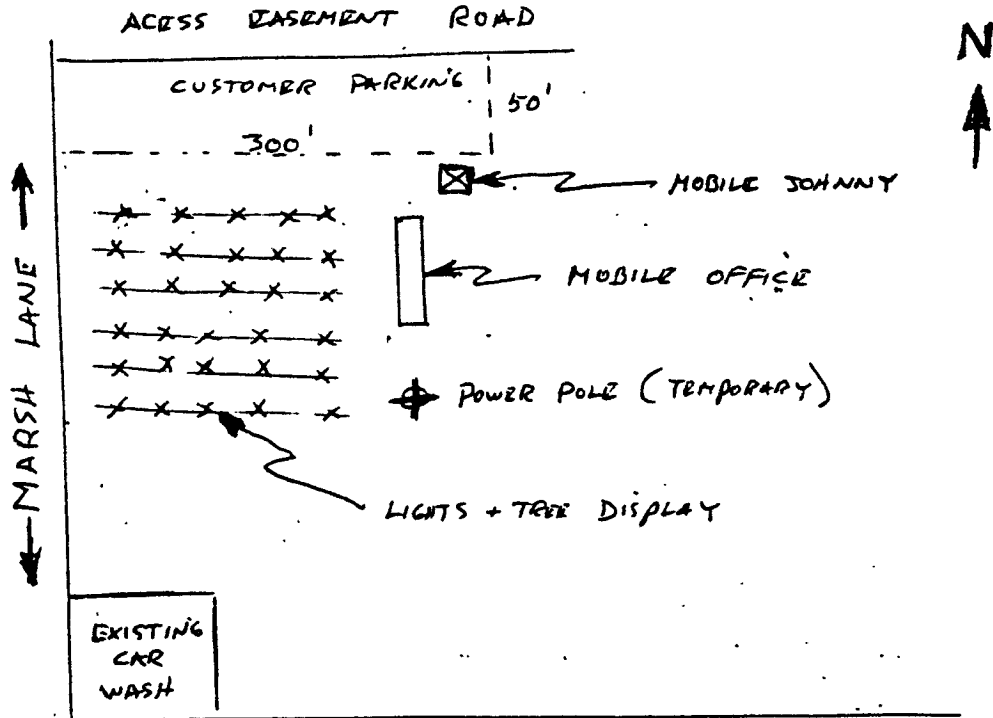 ACESS EASEMENT ROAD
N
CUSTOMER PARKING
50'
300'
MOBILE JOHNNY
MOBILE OFFICE
MARSH LANE
POWER POLE (TEMPORARY)
LIGHTS + TREE DISPLAY
EXISTING
CAR
WASH